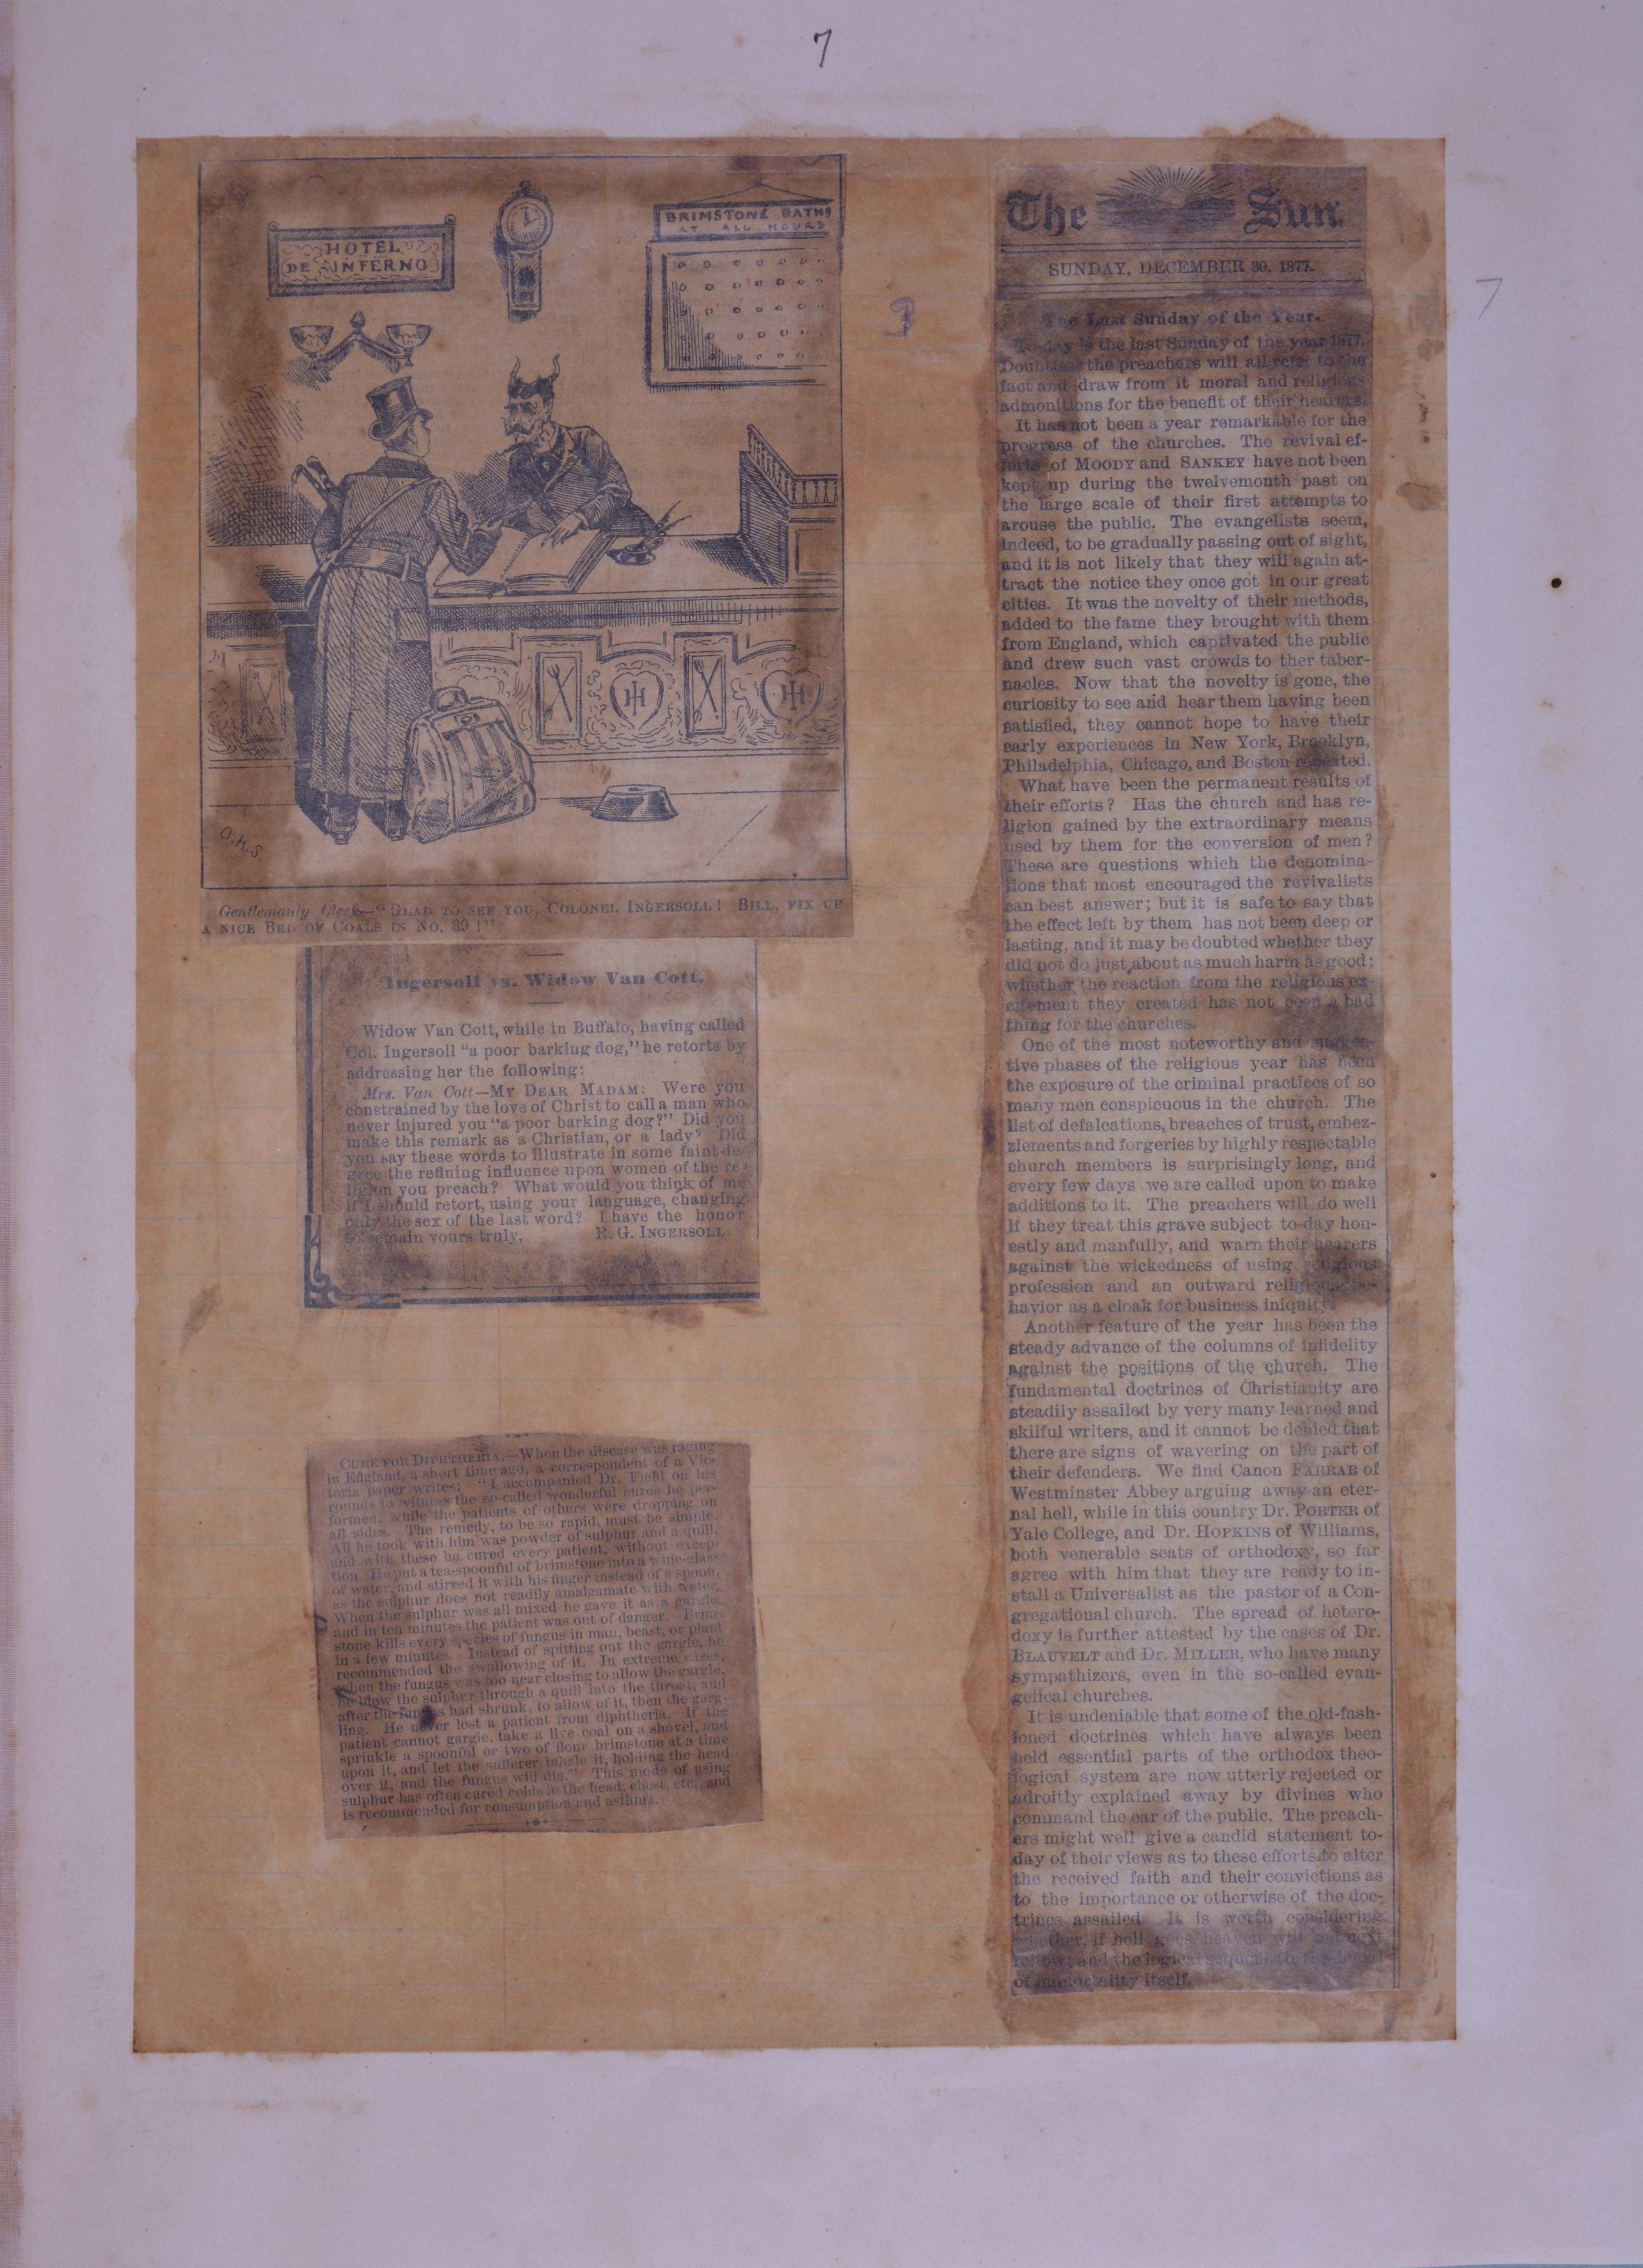 7
HOTEL
DE INFERNO
BRIMSTONE BATHS
AT ALL HOURS
O.H.S.
Gentlemanly Clerk—"GLAD TO SEE YOU, COLONEL INGERSOLL! BILL, FIX UP
A NICE BED OF COALS IN NO. 39!"
Ingersoll vs. Widow Van Cott.
Widow Van Cott, while in Buffalo, having called
Col. Ingersoll "a poor barking dog," he retorts by
addressing her the following:
Mrs. Van Cott—MY DEAR MADAM: Were you
constrained by the love of Christ to call a man who
never injured you "a poor barking dog?" Did you
make this remark as a Christian, or a lady? Did
you say these words to illustrate in some faint de-
gree the refining influence upon women of the re-
ligion you preach? What would you think of me
if I should retort, using your language, changing
only the sex of the last word? I have the honor
to remain yours truly, R. G. INGERSOLL.
CURE FOR DIPHTHERIA.—When the disease was raging
in England, a short time ago, a correspondent of a Vic-
toria paper writes: "I accompanied Dr. Field on his
rounds to witness the so-called wonderful cures he per-
formed, while the patients of others were dropping on
all sides. The remedy, to be so rapid, must be simple.
All he took with him was powder of sulphur and a quill,
and with these he cured every patient, without excep-
tion. He put a tea-spoonful of brimstone into a wine-glass
of water, and stirred it with his finger instead of a spoon,
as the sulphur does not readily amalgamate with water.
When the sulphur was all mixed he gave it as a gargle,
and in ten minutes the patient was out of danger. Brim-
stone kills every species of fungus in man, beast, or plant
in a few minutes. Instead of spitting out the gargle, he
recommended the swallowing of it. In extreme cases,
when the fungus was too near closing to allow the gargle,
he blew the sulphur through a quill into the throat, and
after the fungus had shrunk, to allow of it, then the garg-
ling. He never lost a patient from diphtheria. If the
patient cannot gargle, take a live coal on a shovel, and
sprinkle a spoonful or two of flour brimstone at a time
upon it, and let the sufferer inhale it, holding the head
over it, and the fungus will die." This mode of using
sulphur has often cured colds in the head, chest, etc., and
is recommended for consumption and asthma.
The Sun.
SUNDAY, DECEMBER 30, 1877.
The Last Sunday of the Year.
To-day is the last Sunday of the year 1877.
Doubtless the preachers will all refer to the
fact and draw from it moral and religious
admonitions for the benefit of their hearers.
It has not been a year remarkable for the
progress of the churches. The revival ef-
forts of MOODY and SANKEY have not been
kept up during the twelvemonth past on
the large scale of their first attempts to
arouse the public. The evangelists seem,
indeed, to be gradually passing out of sight,
and it is not likely that they will again at-
tract the notice they once got in our great
cities. It was the novelty of their methods,
added to the fame they brought with them
from England, which captivated the public
and drew such vast crowds to ther taber-
nacles. Now that the novelty is gone, the
curiosity to see and hear them having been
satisfied, they cannot hope to have their
early experiences in New York, Brooklyn,
Philadelphia, Chicago, and Boston repeated.
What have been the permanent results of
their efforts? Has the church and has re-
ligion gained by the extraordinary means
used by them for the conversion of men?
These are questions which the denomina-
tions that most encouraged the revivalists
can best answer; but it is safe to say that
the effect left by them has not been deep or
lasting, and it may be doubted whether they
did not do just about as much harm as good;
whether the reaction from the religious ex-
citement they created has not been a bad
thing for the churches.
One of the most noteworthy and sugges-
tive phases of the religious year has been
the exposure of the criminal practices of so
many men conspicuous in the church. The
list of defalcations, breaches of trust, embez-
zlements and forgeries by highly respectable
church members is surprisingly long, and
every few days we are called upon to make
additions to it. The preachers will do well
if they treat this grave subject to-day hon-
estly and manfully, and warn their hearers
against the wickedness of using religious
profession and an outward religious be-
havior as a cloak for business iniquity.
Another feature of the year has been the
steady advance of the columns of infidelity
against the positions of the church. The
fundamental doctrines of Christianity are
steadily assailed by very many learned and
skilful writers, and it cannot be denied that
there are signs of wavering on the part of
their defenders. We find Canon FARRAR of
Westminster Abbey arguing away an eter-
nal hell, while in this country Dr. PORTER of
Yale College, and Dr. HOPKINS of Williams,
both venerable seats of orthodoxy, so far
agree with him that they are ready to in-
stall a Universalist as the pastor of a Con-
gregational church. The spread of hetero-
doxy is further attested by the cases of Dr.
BLAUVELT and Dr. MILLER, who have many
sympathizers, even in the so-called evan-
gelical churches.
It is undeniable that some of the old-fash-
ioned doctrines which have always been
held essential parts of the orthodox theo-
logical system are now utterly rejected or
adroitly explained away by divines who
command the ear of the public. The preach-
ers might well give a candid statement to-
day of their views as to these efforts to alter
the received faith and their convictions as
to the importance or otherwise of the doc-
trines assailed. It is worth considering
whether, if hell goes, heaven will not next
follow, and the logical sequence be the denial
of immortality itself.
7